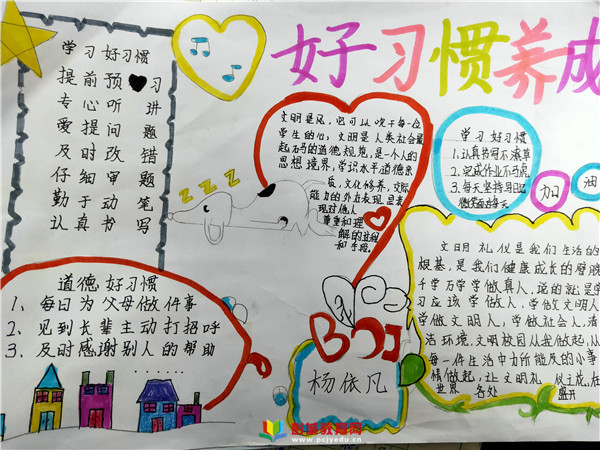 好习惯养成
学习好习惯
提前预习
专心听讲
爱提问题
及时改错
仔细审题
勤于动笔
认真书写
zzz
文明是风，它可以吹干每一位
学生的心；文明是人类社会最
起码的道德规范，是一个人的
思想境界，学识水平道德素
质，文化修养，交际
能力的外在表现，是表
现对他人
尊重和理
解的过程
和手段。
学习好习惯
1.认真书写不潦草
2.完成作业不马虎
3.每天坚持写日记
微笑面对每天
加油
道德好习惯
1、每日为父母做件事
2、见到长辈主动打招呼
3、及时感谢别人的帮助
......
杨依凡
文明礼仪是我们生活的
根基，是我们健康成长的臂膀
千学万学学做真人，说的就是学
习应该学做人，学做文明人
学做文明人，学做社会人，清
洁环境，文明校园从我做起，从
每一件生活中力所能及的小事
情做起，让文明礼仪之花，在
世界各处盛开
www.pcjyedu.cn